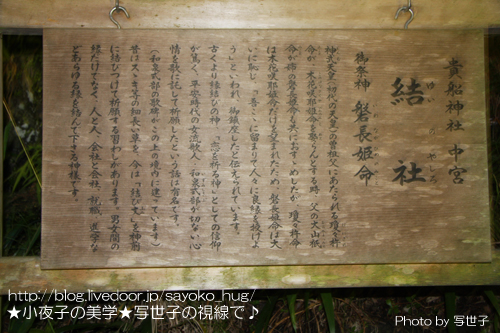 貴船神社 中宮
結社
けい しゃ
やしろ
御祭神 磐長姫命
神武天皇(初代の天皇)の曽祖父にあたられる瓊々杵
命が、木花咲耶姫命を娶らんとする時、父の大山祇
命が姉の磐長姫命も共におすゝめしたが、瓊々杵命
は木花咲耶姫命だけを望まれたため、磐長姫命は大
いに恥じ、「吾こゝに留まりて人々に良縁を授けよ
う」といわれ、御鎮座したと伝えられています。
古くより縁結びの神、「恋を祈る神」としての信仰
が篤く、平安時代の女流歌人 和泉式部が切ない心
情を歌に託して祈願したという話は有名です。
(和泉式部の歌碑がこの上の境内に建っています)
昔はスヽキ等の細長い草を、今は「結び文」を神前
に結びつけて祈願する習わしがあります。男女間の
縁だけでなく、人と人、会社と会社、就職、進学な
どあらゆる縁を結んで下さる神様です。
http://blog.livedoor.jp/sayoko_hug/
★小夜子の美学★写世子の視線で♪
Photo by 写世子